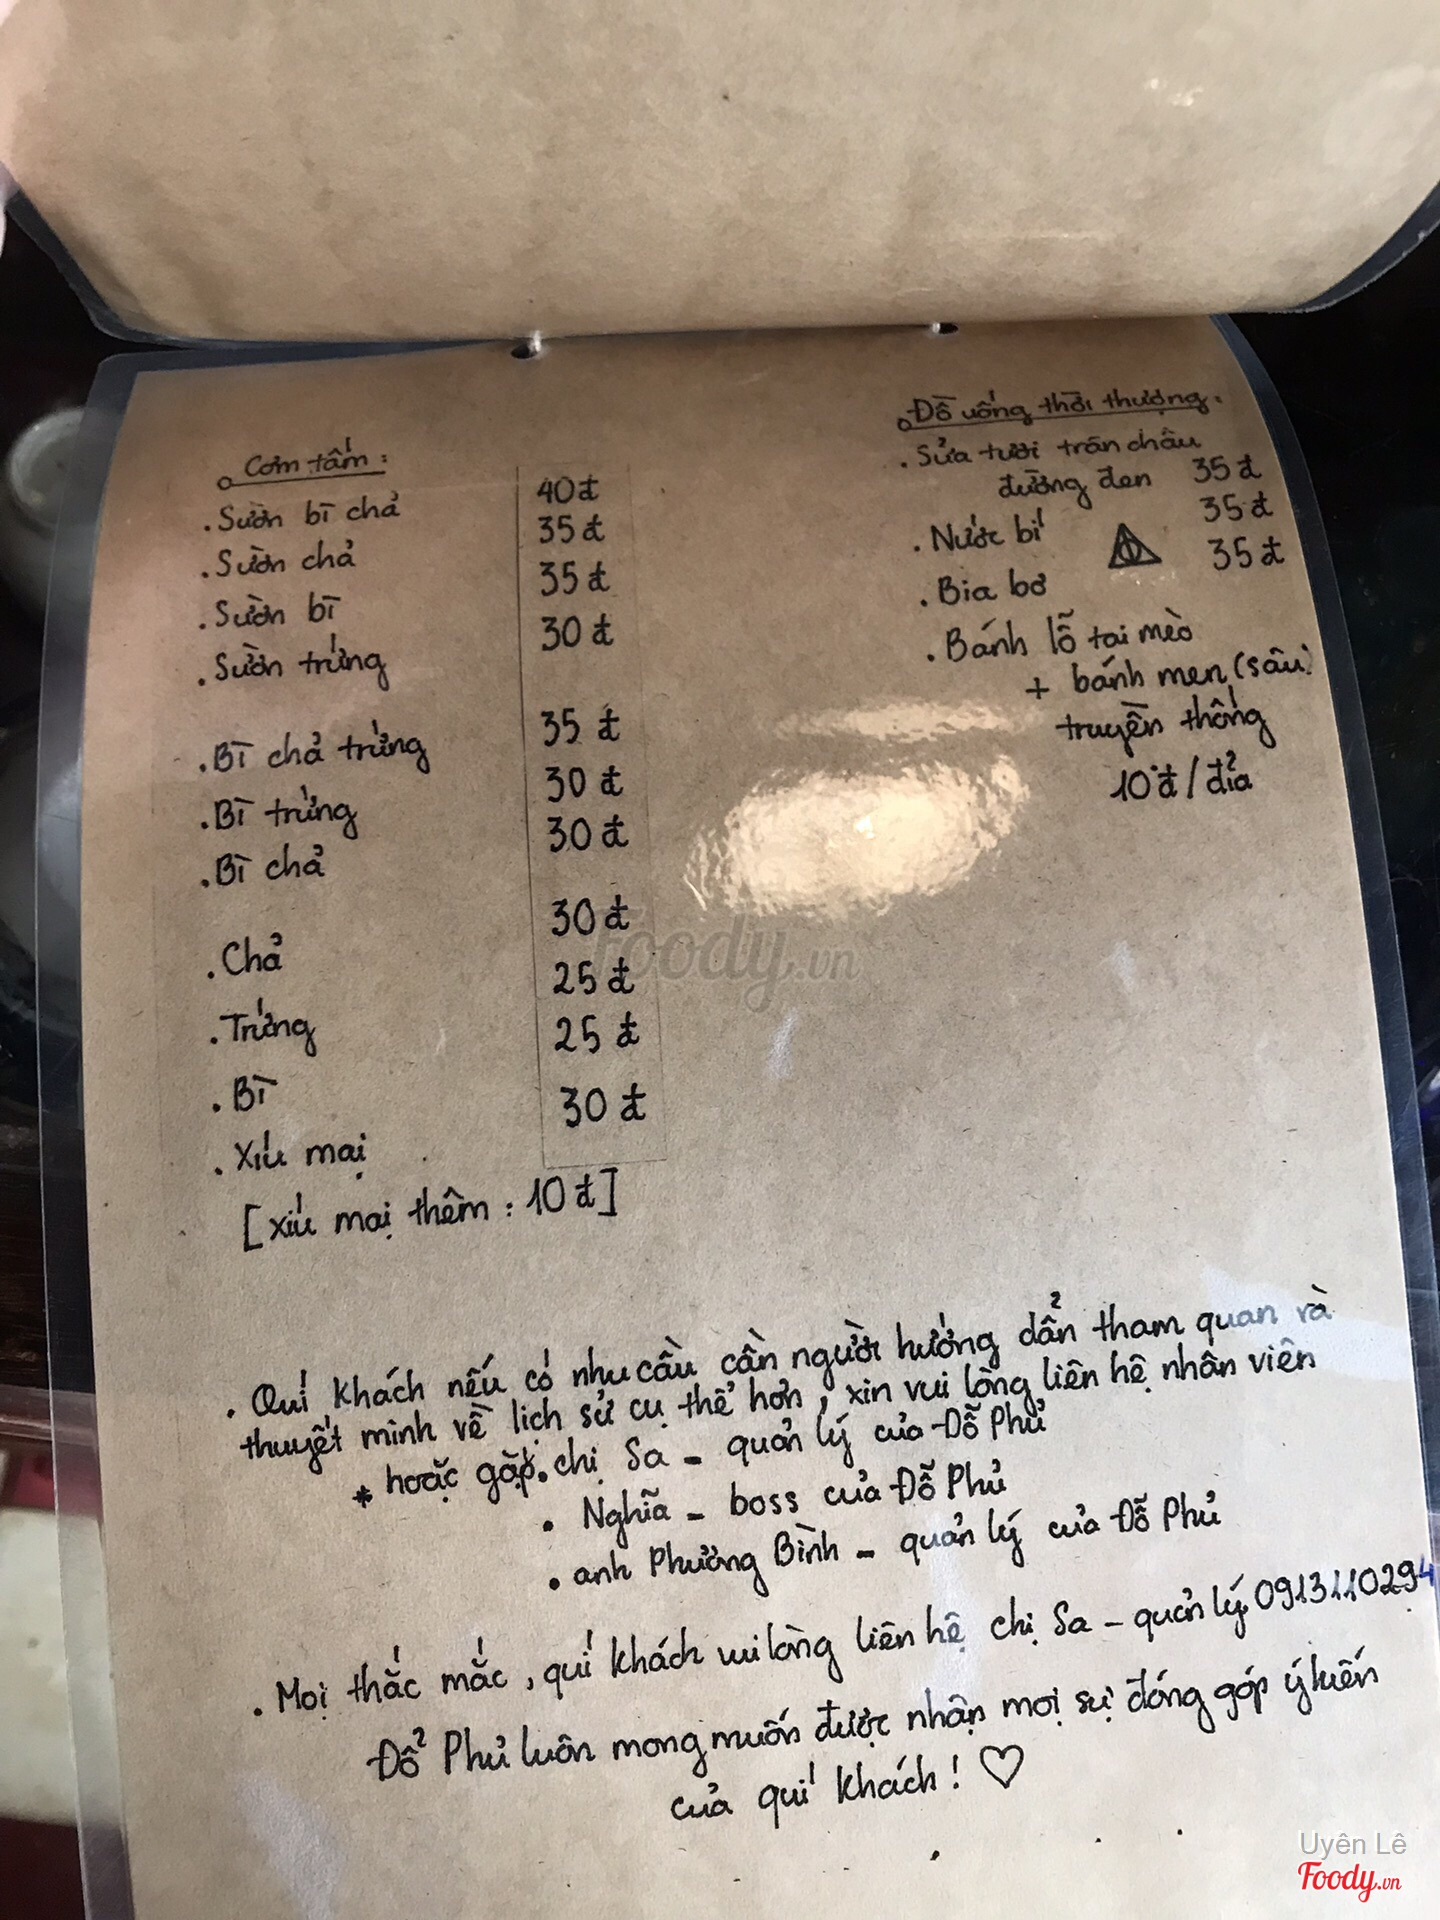 Cơm tấm:
. Sườn bì chả 40đ
. Sườn chả 35đ
. Sườn bì 35đ
. Sườn trứng 30đ
. Bì chả trứng 35đ
. Bì trứng 30đ
. Bì chả 30đ
. Chả 30đ
. Trứng 25đ
. Bì 25đ
. Xíu mại 30đ
[xíu mại thêm: 10đ]
Đồ uống thời thượng:
. Sữa tươi trân châu
đường đen 35đ
. Nước bí 35đ
. Bia bơ 35đ
. Bánh lỗ tai mèo
+ bánh men (sâu)
truyền thống
10đ/đĩa
. Quí khách nếu có nhu cầu cần người hướng dẩn tham quan và
thuyết minh về lịch sử cụ thể hơn, xin vui lòng liên hệ nhân viên
* hoặc gặp. chị Sa - quản lý của Đỗ Phủ
. Nghĩa - boss của Đỗ Phủ
. anh Phương Bình - quản lý của Đỗ Phủ
. Mọi thắc mắc, quí khách vui lòng liên hệ chị Sa - quản lý. 0913110294
Đổ Phủ luôn mong muốn được nhận mọi sự đóng góp ý kiến
của quí khách! ♡
Foody.vn
Uyên Lê
Foody.vn